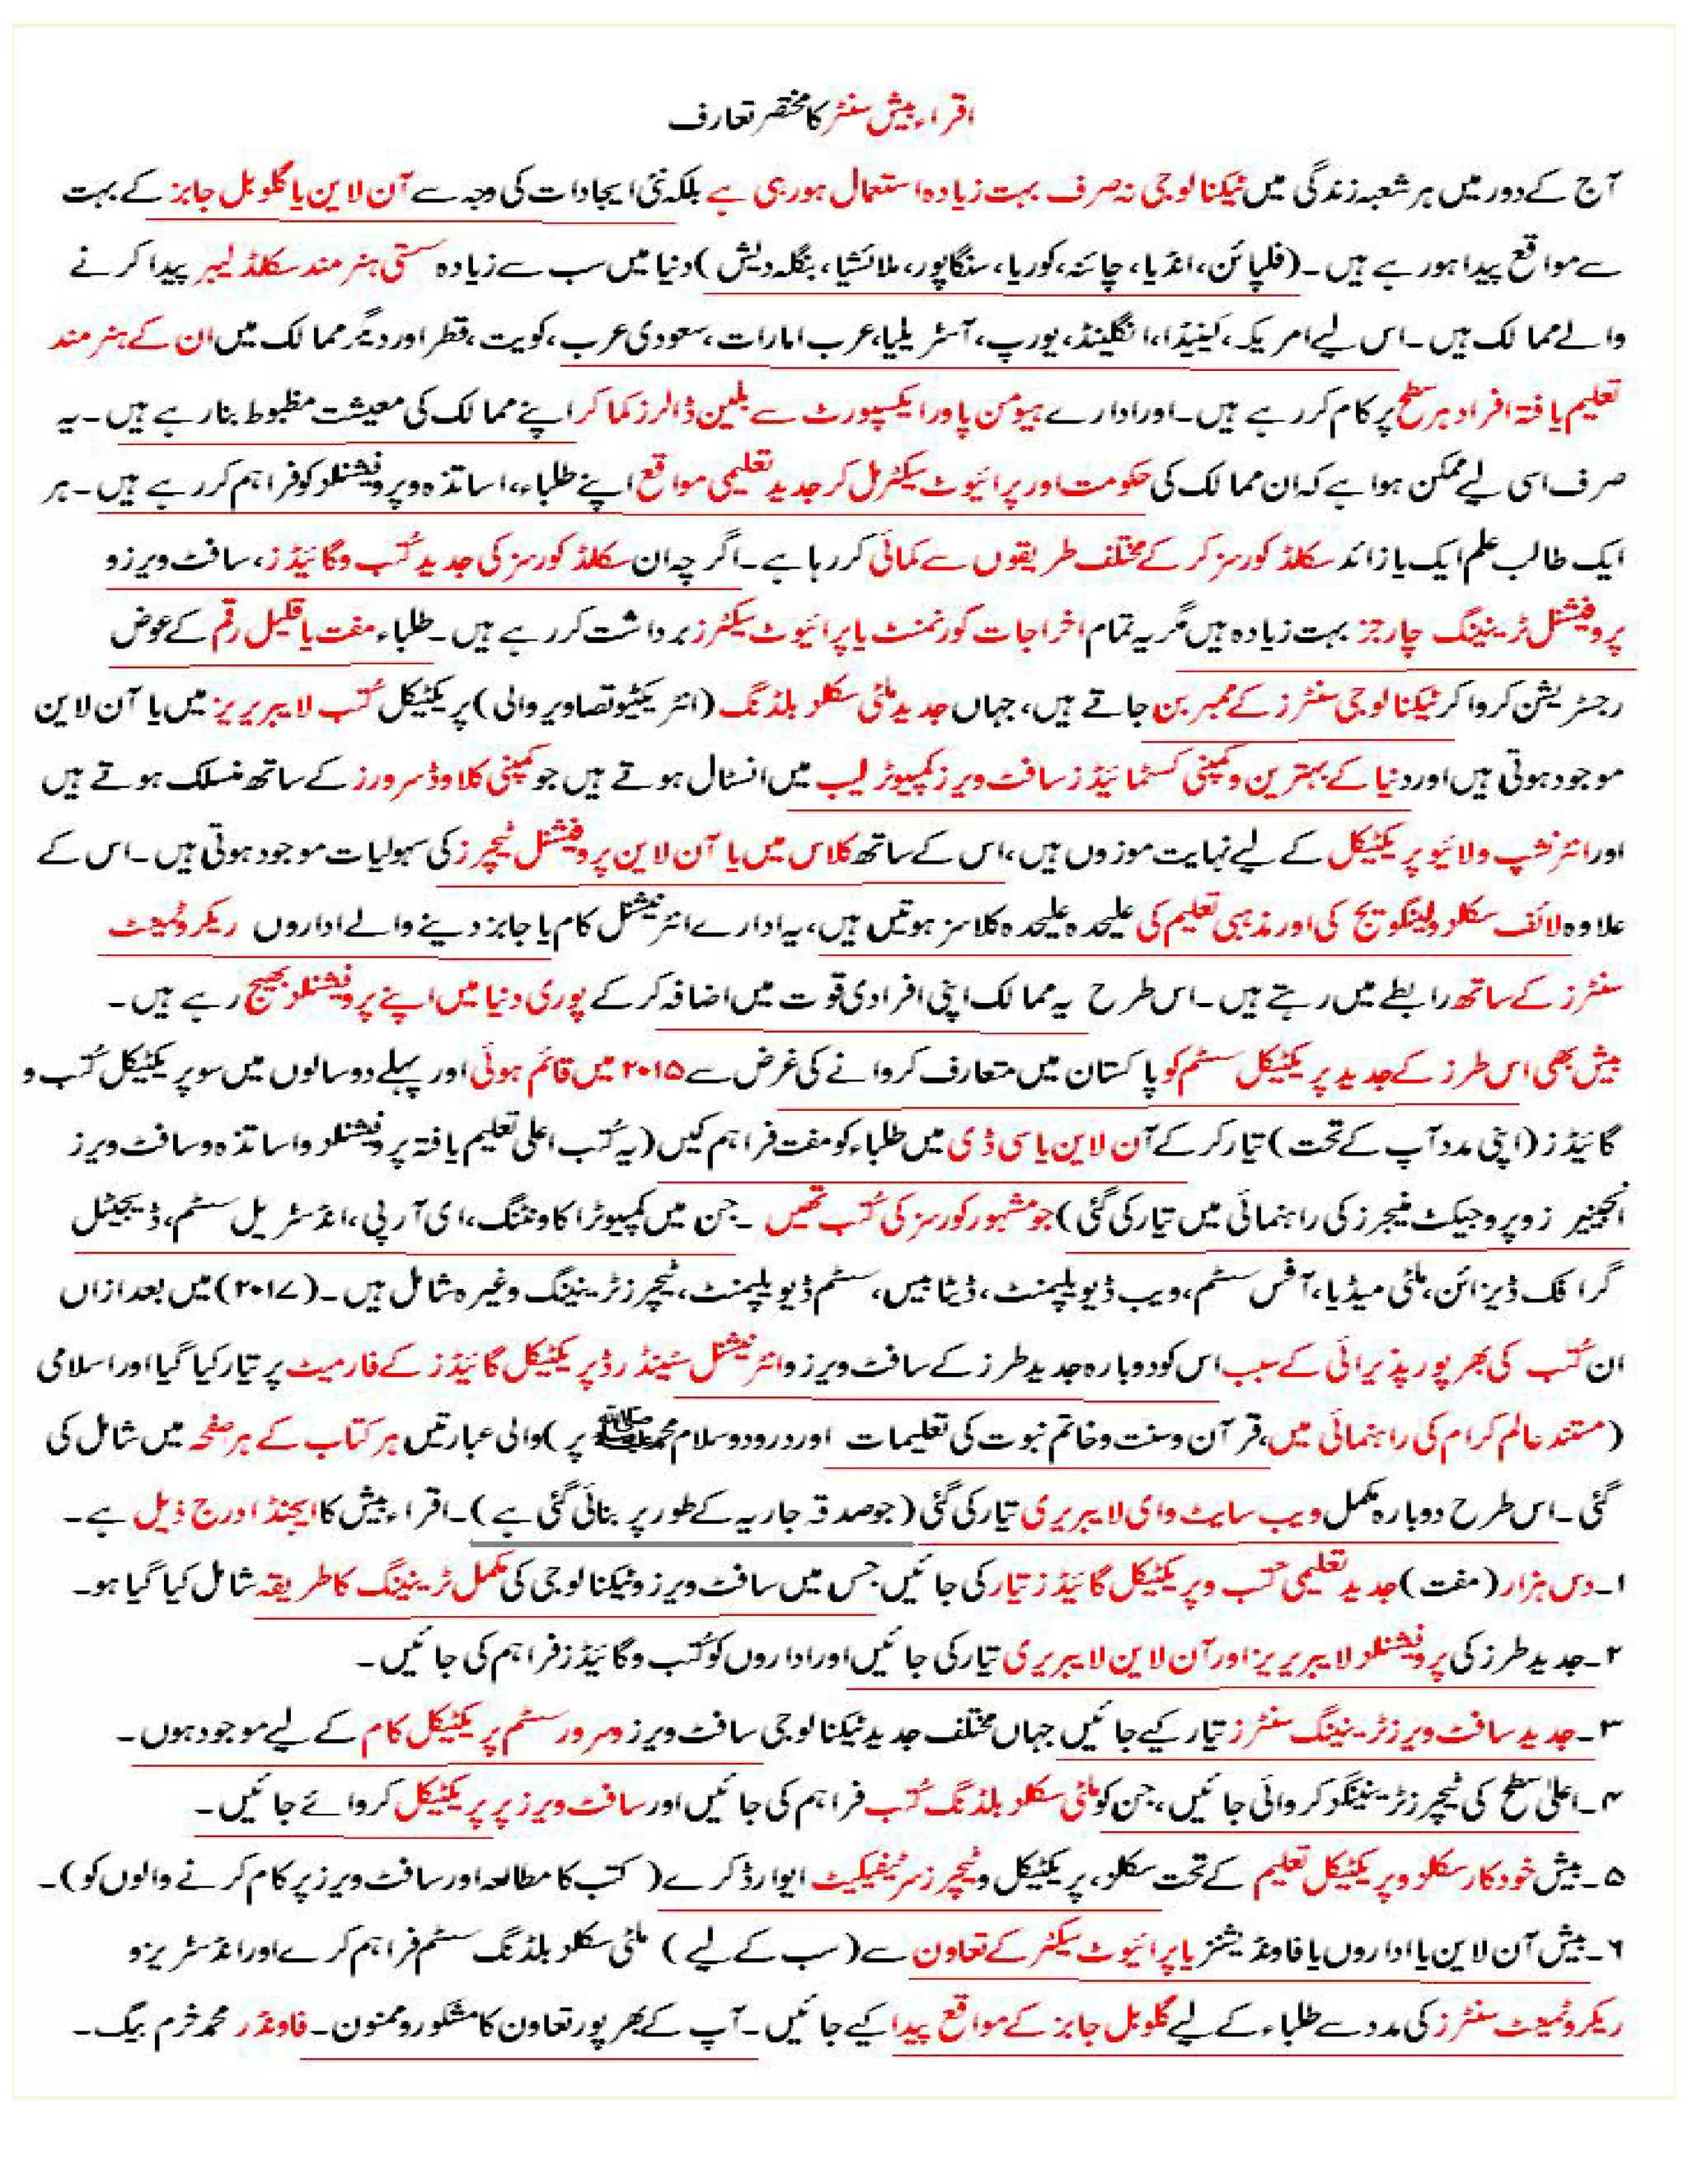 اقراء بیش سنٹر کا مختصر تعارف
آج کے دور میں ہر شعبہ زندگی میں ٹیکنالوجی نہ صرف بہت زیادہ استعمال ہو رہی ہے بلکہ نئی ایجادات کی وجہ سے آن لاین یا گلوبل جابز کے بہت
سے مواقع پیدا ہو رہے ہیں۔ (فلپائن، انڈیا، چائنہ، کوریا، سنگاپور، ملائشیا، بنگلہ دیش) دنیا میں سب سے زیادہ سستی ہنر مند سکلڈ لیبر پیدا کرنے
والے ممالک ہیں۔ اس لیے امریکہ، کینیڈا، انگلینڈ، یورپ، آسٹریلیا، عرب امارات، سعودی عرب، کویت، قطر اور دیگر ممالک میں ان کے ہنر مند
تعلیم یافتہ افراد ہر سطح پر کام کر رہے ہیں۔ اور ادارے ہیومن پاور ایکسپورٹ سے بلین ڈالرز کما کر اپنے ممالک کی معیشت مظبوط بنا رہے ہیں۔ یہ
صرف اسی لیے ممکن ہوا ہے کہ ان ممالک کی حکومت اور پرائیوٹ سیکٹر مل کر جدید تعلیمی مواقع اپنے طلباء، اساتذہ و پروفیشنلز کو فراہم کر رہے ہیں۔ ہر
ایک طالب علم ایک یا زائد سکلڈ کورسز کر کے مختلف طریقوں سے کمائی کر رہا ہے۔ اگر چہ ان سکلڈ کورسز کی جدید کُتب و گائیڈز، سافٹ ویرز و
پروفیشنل ٹریننگ چارجز بہت زیادہ ہیں مگر یہ تمام اخراجات گورنمنٹ یا پرائیوٹ سیکٹرز برداشت کر رہے ہیں۔ طلباء مفت یا قلیل رقم کے عوض
رجسٹریشن کروا کر ٹیکنالوجی سنٹرز کے ممبر بن جاتے ہیں، جہاں جدید ملٹی سکلز بلڈنگ (انٹریکٹیو تصاویر والی) پریکٹیکل کُتب لایبریریز میں یا آن لاین
موجود ہوتی ہیں اور دنیا کے بہترین و کمپنی کسٹمائیڈز سافٹ ویرز کمپیوٹر لیب میں انسٹال ہوتے ہیں جو کمپنی کلاوڈ سرورز کے ساتھ منسلک ہوتے ہیں
اور انٹرنشپ و لائیو پریکٹیکل کے لیے نہایت موزوں ہیں، اس کے ساتھ کلاس میں یا آن لاین پروفیشنل ٹیچرز کی سہولیات موجود ہوتی ہیں۔ اس کے
علاوہ لائف سکلز و لینگویج کی اور مذہبی تعلیم کی علیحدہ علیحدہ کلاسز ہوتیں ہیں، یہ ادارے انٹرنیشنل کام یا جابز دینے والے اداروں ریکروٹمنٹ
سنٹرز کے ساتھ رابطے میں رہتے ہیں۔ اس طرح یہ ممالک اپنی افرادی قوت میں اضافہ کر کے پوری دنیا میں اپنے پروفیشنلز بھیج رہے ہیں۔
بیش بھی اس طرز کے جدید پریکٹیکل سسٹم کو پاکستان میں متعارف کروانے کی غرض سے ۲۰۱۵ میں قائم ہوئی اور پہلے دو سالوں میں سو پریکٹیکل کُتب و
گائیڈز (اپنی مدد آپ کے تحت) تیار کر کے آن لاین یا سی ڈی میں طلباء کو مفت فراہم کیں (یہ کُتب اعلی تعلیم یافتہ پروفیشنلز و اساتذہ و سافٹ ویرز
انجینیرز و پروجیکٹ منیجرز کی راہنمائی میں تیار کی گئی) جو مشہور کورسز کی کُتب تھیں ۔ جن میں کمپیوٹر اکاونٹنگ، ای آر پی، انڈسٹریل سسٹم، ڈیجیٹل
گرافک ڈیزائن، ملٹی میڈیا، آفس سسٹم، ویب ڈیولپمنٹ، ڈیٹابیس، سسٹم ڈیولپمنٹ، ٹیچرز ٹریننگ وغیرہ شامل ہیں۔ (۲۰۱۷) میں بعد ازاں
ان کُتب کی بھرپور پذیرائی کے سبب اس کو دوبارہ جدید طرز کے سافٹ ویرز و انٹرنیشنل سٹینڈرڈ پریکٹیکل گائیڈز کے فارمیٹ پر تیار کیا گیا اور اسلامی
(مستند عالم کرام کی راہنمائی میں، قرآن و سنت و خاتم نبوت کی تعلیمات اور درود و سلام محمد ﷺ پر) والی عبارتیں ہر کتاب کے ہر صفحہ میں شامل کی
گئی۔ اس طرح دوبارہ مکمل ویب سایٹ وای لایبریری تیار کی گئی (جو صدقہ جاریہ کے طور پر بنائی گئی ہے)۔ اقراء بیش کا ایجنڈا درج ذیل ہے۔
۱۔ دس ہزار (مفت) جدید تعلیمی کتب و پریکٹیکل گائیڈز تیار کی جائیں جس میں سافٹ ویرز و ٹیکنالوجی کی مکمل ٹریننگ کا طریقہ شامل کیا گیا ہو۔
۲۔ جدید طرز کی پروفیشنلز لایبریریز اور آن لاین لایبریری تیار کی جائیں اور اداروں کو کُتب و گائیڈز فراہم کی جائیں۔
۳۔ جدید سافٹ ویرز ٹریننگ سنٹرز تیار کیے جائیں جہاں مختلف جدید ٹیکنالوجی سافٹ ویرز و سرور سسٹم پر پریکٹیکل کام کے لیے موجود ہوں۔
۴۔ اعلیٰ سطح کی ٹیچرز ٹریننگز کروائی جائیں، جن کو ملٹی سکلز بلڈنگ کُتب فراہم کی جائیں اور سافٹ ویرز پر پریکٹیکل کروائے جائیں۔
۵۔ بیش خودکار سکلز و پریکٹیکل تعلیم کے تحت سکلز، پریکٹیکل و ٹیچرز سرٹیفیکیٹ ایوارڈ کرے (کتب کا مطالعہ اور سافٹ ویرز پر کام کرنے والوں کو)۔
۶۔ بیش آن لاین یا اداروں یا فاونڈیشنز یا پرائیوٹ سیکٹر کے تعاون سے (سب کے لیے) ملٹی سکلز بلڈنگ سسٹم فراہم کرے اور انڈسٹریز و
ریکروٹمنٹ سنٹرز کی مدد سے طلباء کے لیے گلوبل جابز کے مواقع پیدا کیے جائیں۔ آپ کے بھرپور تعاون کا مشکور و ممنون۔ فاونڈر محمد خرم بیگ۔